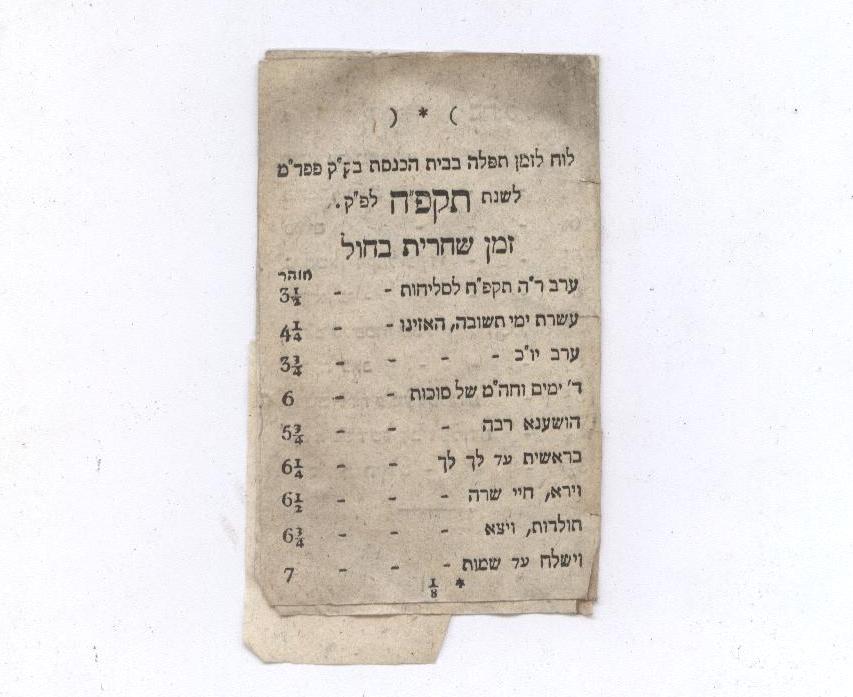 ( * )
לוח לזמן תפלה בבית הכנסת בק״ק פפר״מ
לשנת תקפ״ח לפ״ק.
זמן שחרית בחול
ערב ר״ה תקפ״ח לסליחות - - 3½
עשרת ימי תשובה, האזינו - - 4¼
ערב יו״כ - - - - 3¾
ד׳ ימים וחה״מ של סוכות - - 6
הושענא רבה - - - 5¾
בראשית עד לך לך - - 6¼
וירא, חיי שרה - - - 6½
תולדות, ויצא - - - 6¾
וישלח עד שמות - - - 7
* ⅛